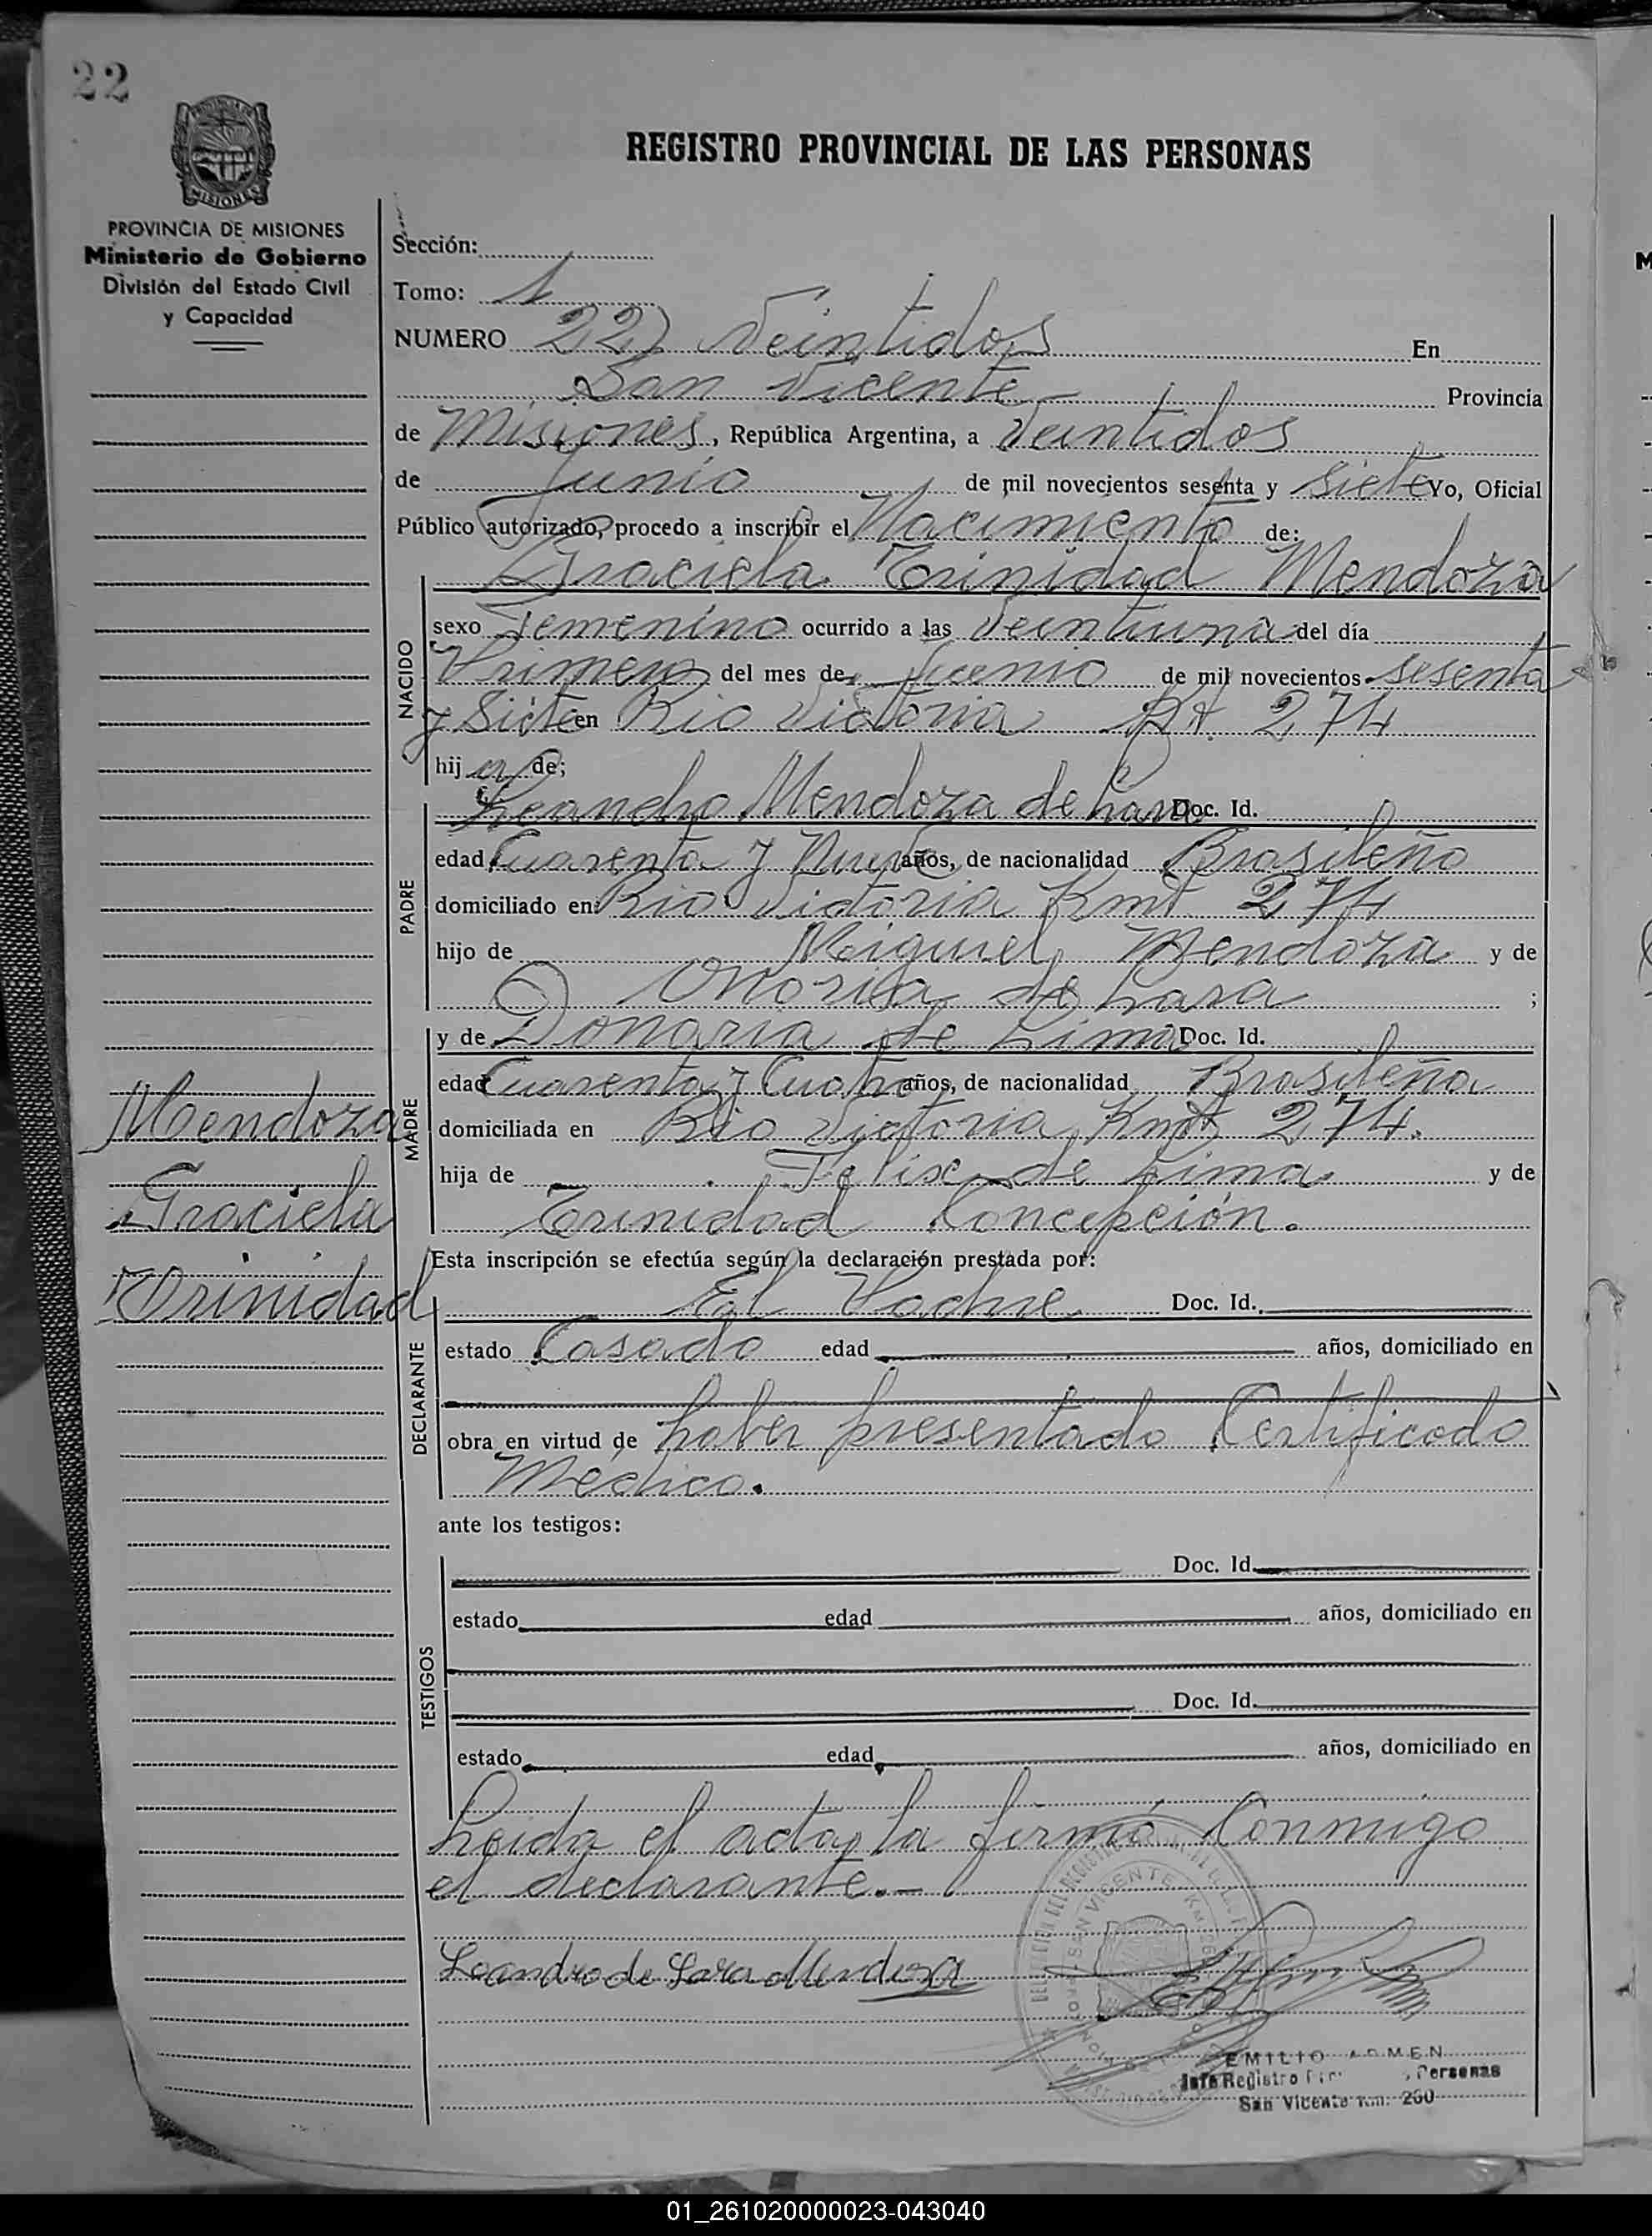 22
PROVINCIA DE MISIONES
MISIONES
PROVINCIA DE MISIONES
Ministerio de Gobierno
División del Estado Civil
y Capacidad
REGISTRO PROVINCIAL DE LAS PERSONAS
Sección:
Tomo: 1
NUMERO 22) Veintidos En
San Vicente Provincia
de Misiones, República Argentina, a Veintidos
de Junio de mil novecientos sesenta y siete Yo, Oficial
Público autorizado, procedo a inscribir el Nacimiento de:
NACIDO
Graciela Trinidad Mendoza
sexo Femenino ocurrido a las Veintiuna del día
Primero del mes de Junio de mil novecientos sesenta
y Siete en Rio Victoria Kt. 274
hija de;
PADRE
Leandro Mendoza de Lara Doc. Id.
edad Cuarenta y Nueve años, de nacionalidad Brasileño
domiciliado en Rio Victoria Kmt 274
hijo de Miguel Mendoza y de
Onoria de Lara ;
MADRE
y de Donaria de Lima Doc. Id.
edad Cuarenta y Cuatro años, de nacionalidad Brasileña
domiciliada en Rio Victoria Kmt 274.
hija de Felix de Lima y de
Trinidad Concepción.
Mendoza
Graciela
Trinidad
Esta inscripción se efectúa según la declaración prestada por:
DECLARANTE
El Padre Doc. Id.
estado Casado edad años, domiciliado en
obra en virtud de haber presentado Certificado
Médico.
ante los testigos:
TESTIGOS
Doc. Id.
estado edad años, domiciliado en
Doc. Id.
estado edad años, domiciliado en
Leida el acta, la firmó Conmigo
el declarante.-
Leandro de Lara Mendoza
SAN VICENTE
EMILIO
Jefe Registro Personas
San Vicente Km. 260
01_261020000023-043040